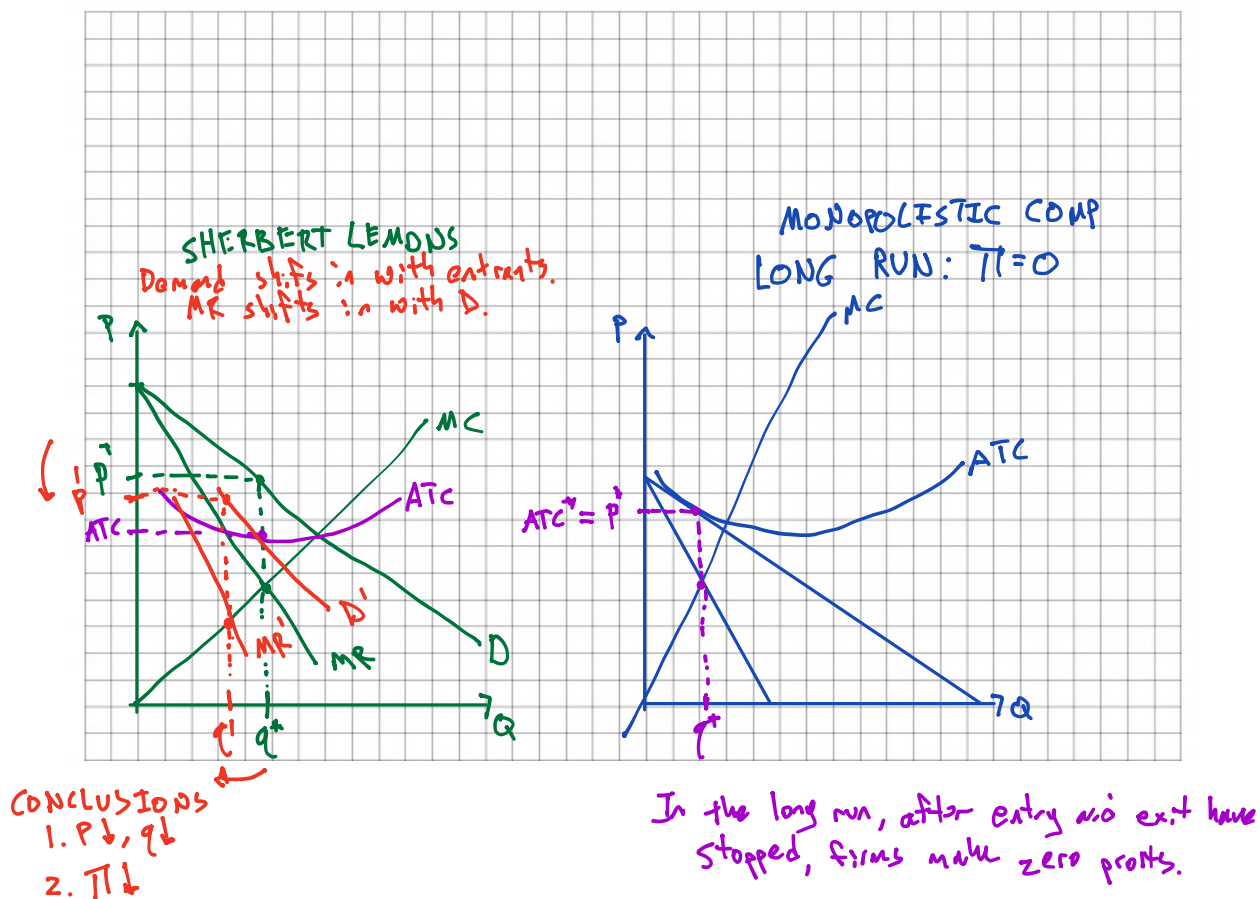 SHERBERT LEMONS
Demand shifs in with entrants.
MR shifts in with D.
P
MC
P*
P'
ATC
ATC
D'
MR'
MR
D
Q
q'
q*
CONCLUSIONS
1. P↓, q↓
2. Π↓
MONOPOLISTIC COMP
LONG RUN: Π=0
P
MC
ATC
ATC* = P*
Q
q*
In the long run, after entry and exit have
stopped, firms make zero profits.